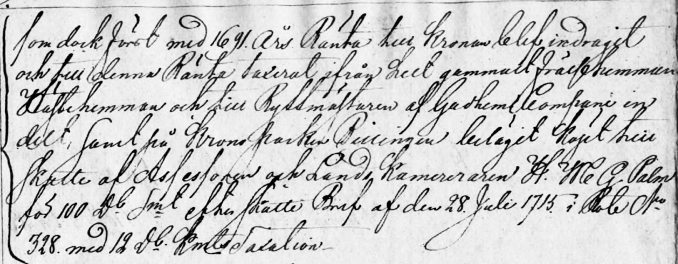 som dock först med 1691. års Ränta till Kronan blef indragit
och till denna Ränta taxerat ifrån Lect gammalt frälsehemman
Skattehemman och till Ryttmästaren af Gudhems Compani in
delt, samt på Krono Parken Billingen beläget Köpt till
Skatte af Assessoren och Lands Kamereraren H. Palm
för 100 D:r Smt efter Skatte Bref af den 28. Juli 1715. i Role No
328. med 12 D:r Kmts Taxation